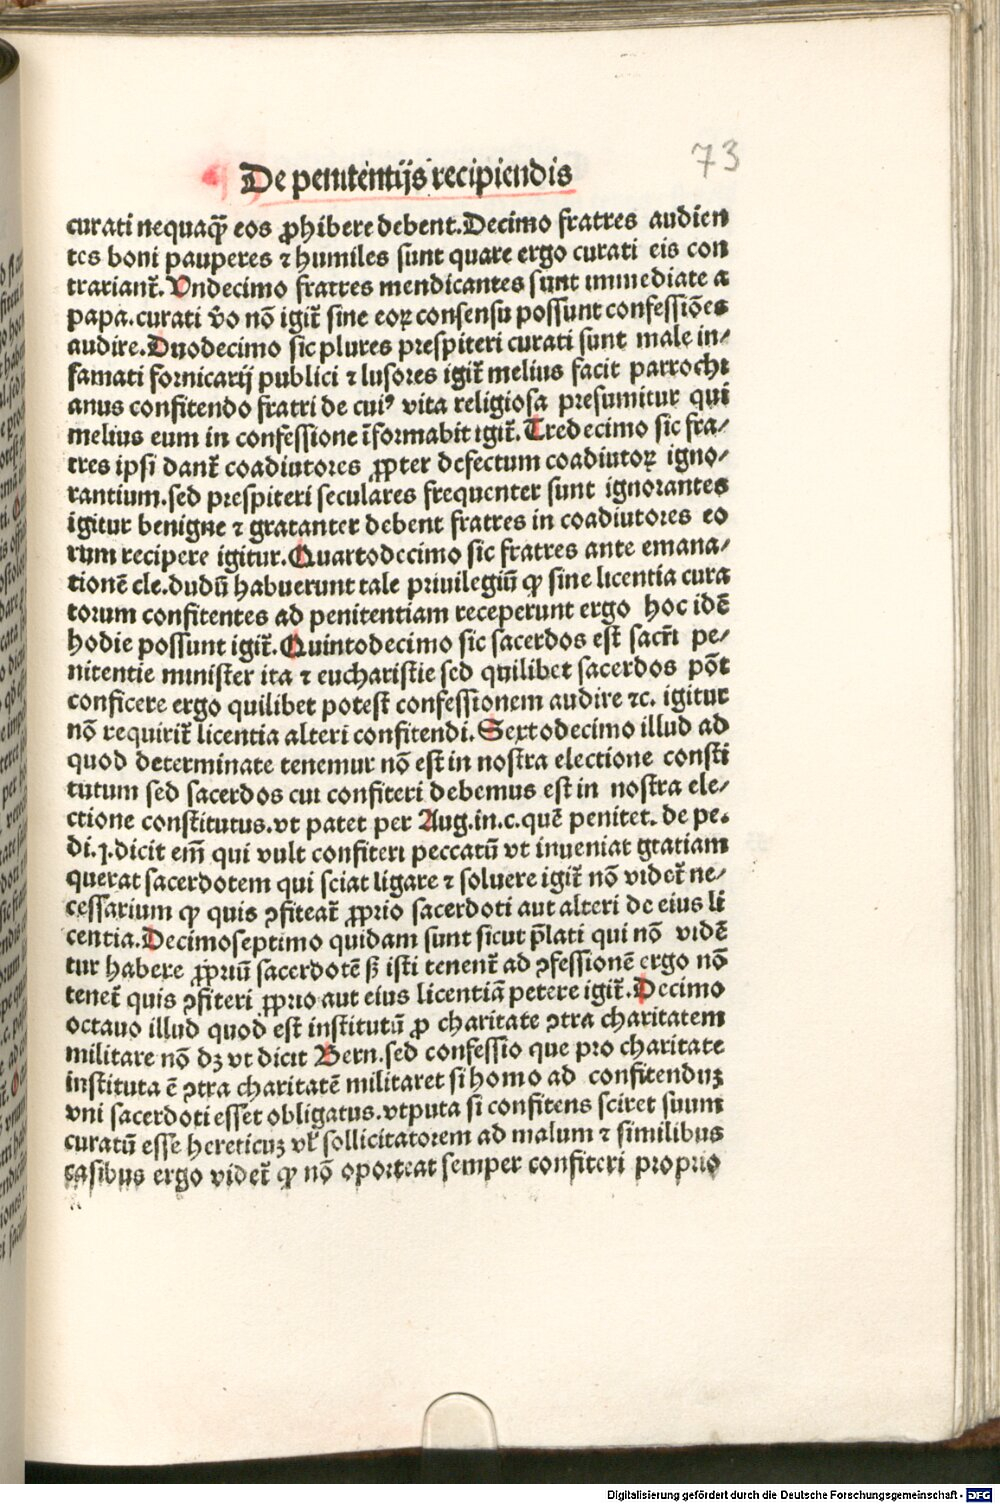 De penitentijs recipiendis
73
curati nequaq̃ eos ꝓhibere debent. Decimo fratres audien
tes boni pauperes ⁊ humiles sunt quare ergo curati eis con
trariant̃. Vndecimo fratres mendicantes sunt immediate a
papa. curati v̄o nō igit̃ sine eoꝝ consensu possunt confessiōes
audire. Duodecimo sic plures prespiteri curati sunt male in⸗
famati fornicarij publici ⁊ lusores igit̃ melius facit parrochi
anus confitendo fratri de cuiꝰ vita religiosa presumitur qui
melius eum in confessione īformabit igit̃. Tredecimo sic fra⸗
tres ipsi dant̃ coadiutores ꝓpter defectum coadiutoꝝ igno⸗
rantium. sed prespiteri seculares frequenter sunt ignorantes
igitur benigne ⁊ gratanter debent fratres in coadiutores eo
rum recipere igitur. Quartodecimo sic fratres ante emana⸗
tionē cle. dudū habuerunt tale priuilegiū ꝙ sine licentia cura
torum confitentes ad penitentiam receperunt ergo hoc idē
hodie possunt igit̃. Quintodecimo sic sacerdos est sacr̄i pe⸗
nitentie minister ita ⁊ eucharistie sed quilibet sacerdos pōt
conficere ergo quilibet potest confessionem audire ⁊c. igitur
nō requirit̃ licentia alteri confitendi. Sextodecimo illud ad
quod determinate tenemur nō est in nostra electione consti
tutum sed sacerdos cui confiteri debemus est in nostra ele⸗
ctione constitutus. vt patet per Aug. in. c. quē penitet. de pe.
di. j. dicit em̄ qui vult confiteri peccatū vt inueniat gratiam
querat sacerdotem qui sciat ligare ⁊ soluere igit̃ nō videt̃ ne⸗
cessarium ꝙ quis ꝯfiteat̃ ꝓprio sacerdoti aut alteri de eius li
centia. Decimoseptimo quidam sunt sicut p̄lati qui nō vidē
tur habere ꝓpriū sacerdotē sꝫ isti tenent̃ ad ꝯfessionē ergo nō
tenet̃ quis ꝯfiteri ꝓprio aut eius licentiā petere igit̃. Decimo
octauo illud quod est institutū ꝓ charitate ꝯtra charitatem
militare nō dꝫ vt dicit Bern. sed confessio que pro charitate
instituta ē ꝯtra charitatē militaret si homo ad confitenduꝫ
vni sacerdoti esset obligatus. vtputa si confitens sciret suum
curatū esse hereticuꝫ vl̓ sollicitatorem ad malum ⁊ similibus
casibus ergo videt̃ ꝙ nō oporteat semper confiteri proprio
Digitalisierung gefördert durch die Deutsche Forschungsgemeinschaft - DFG